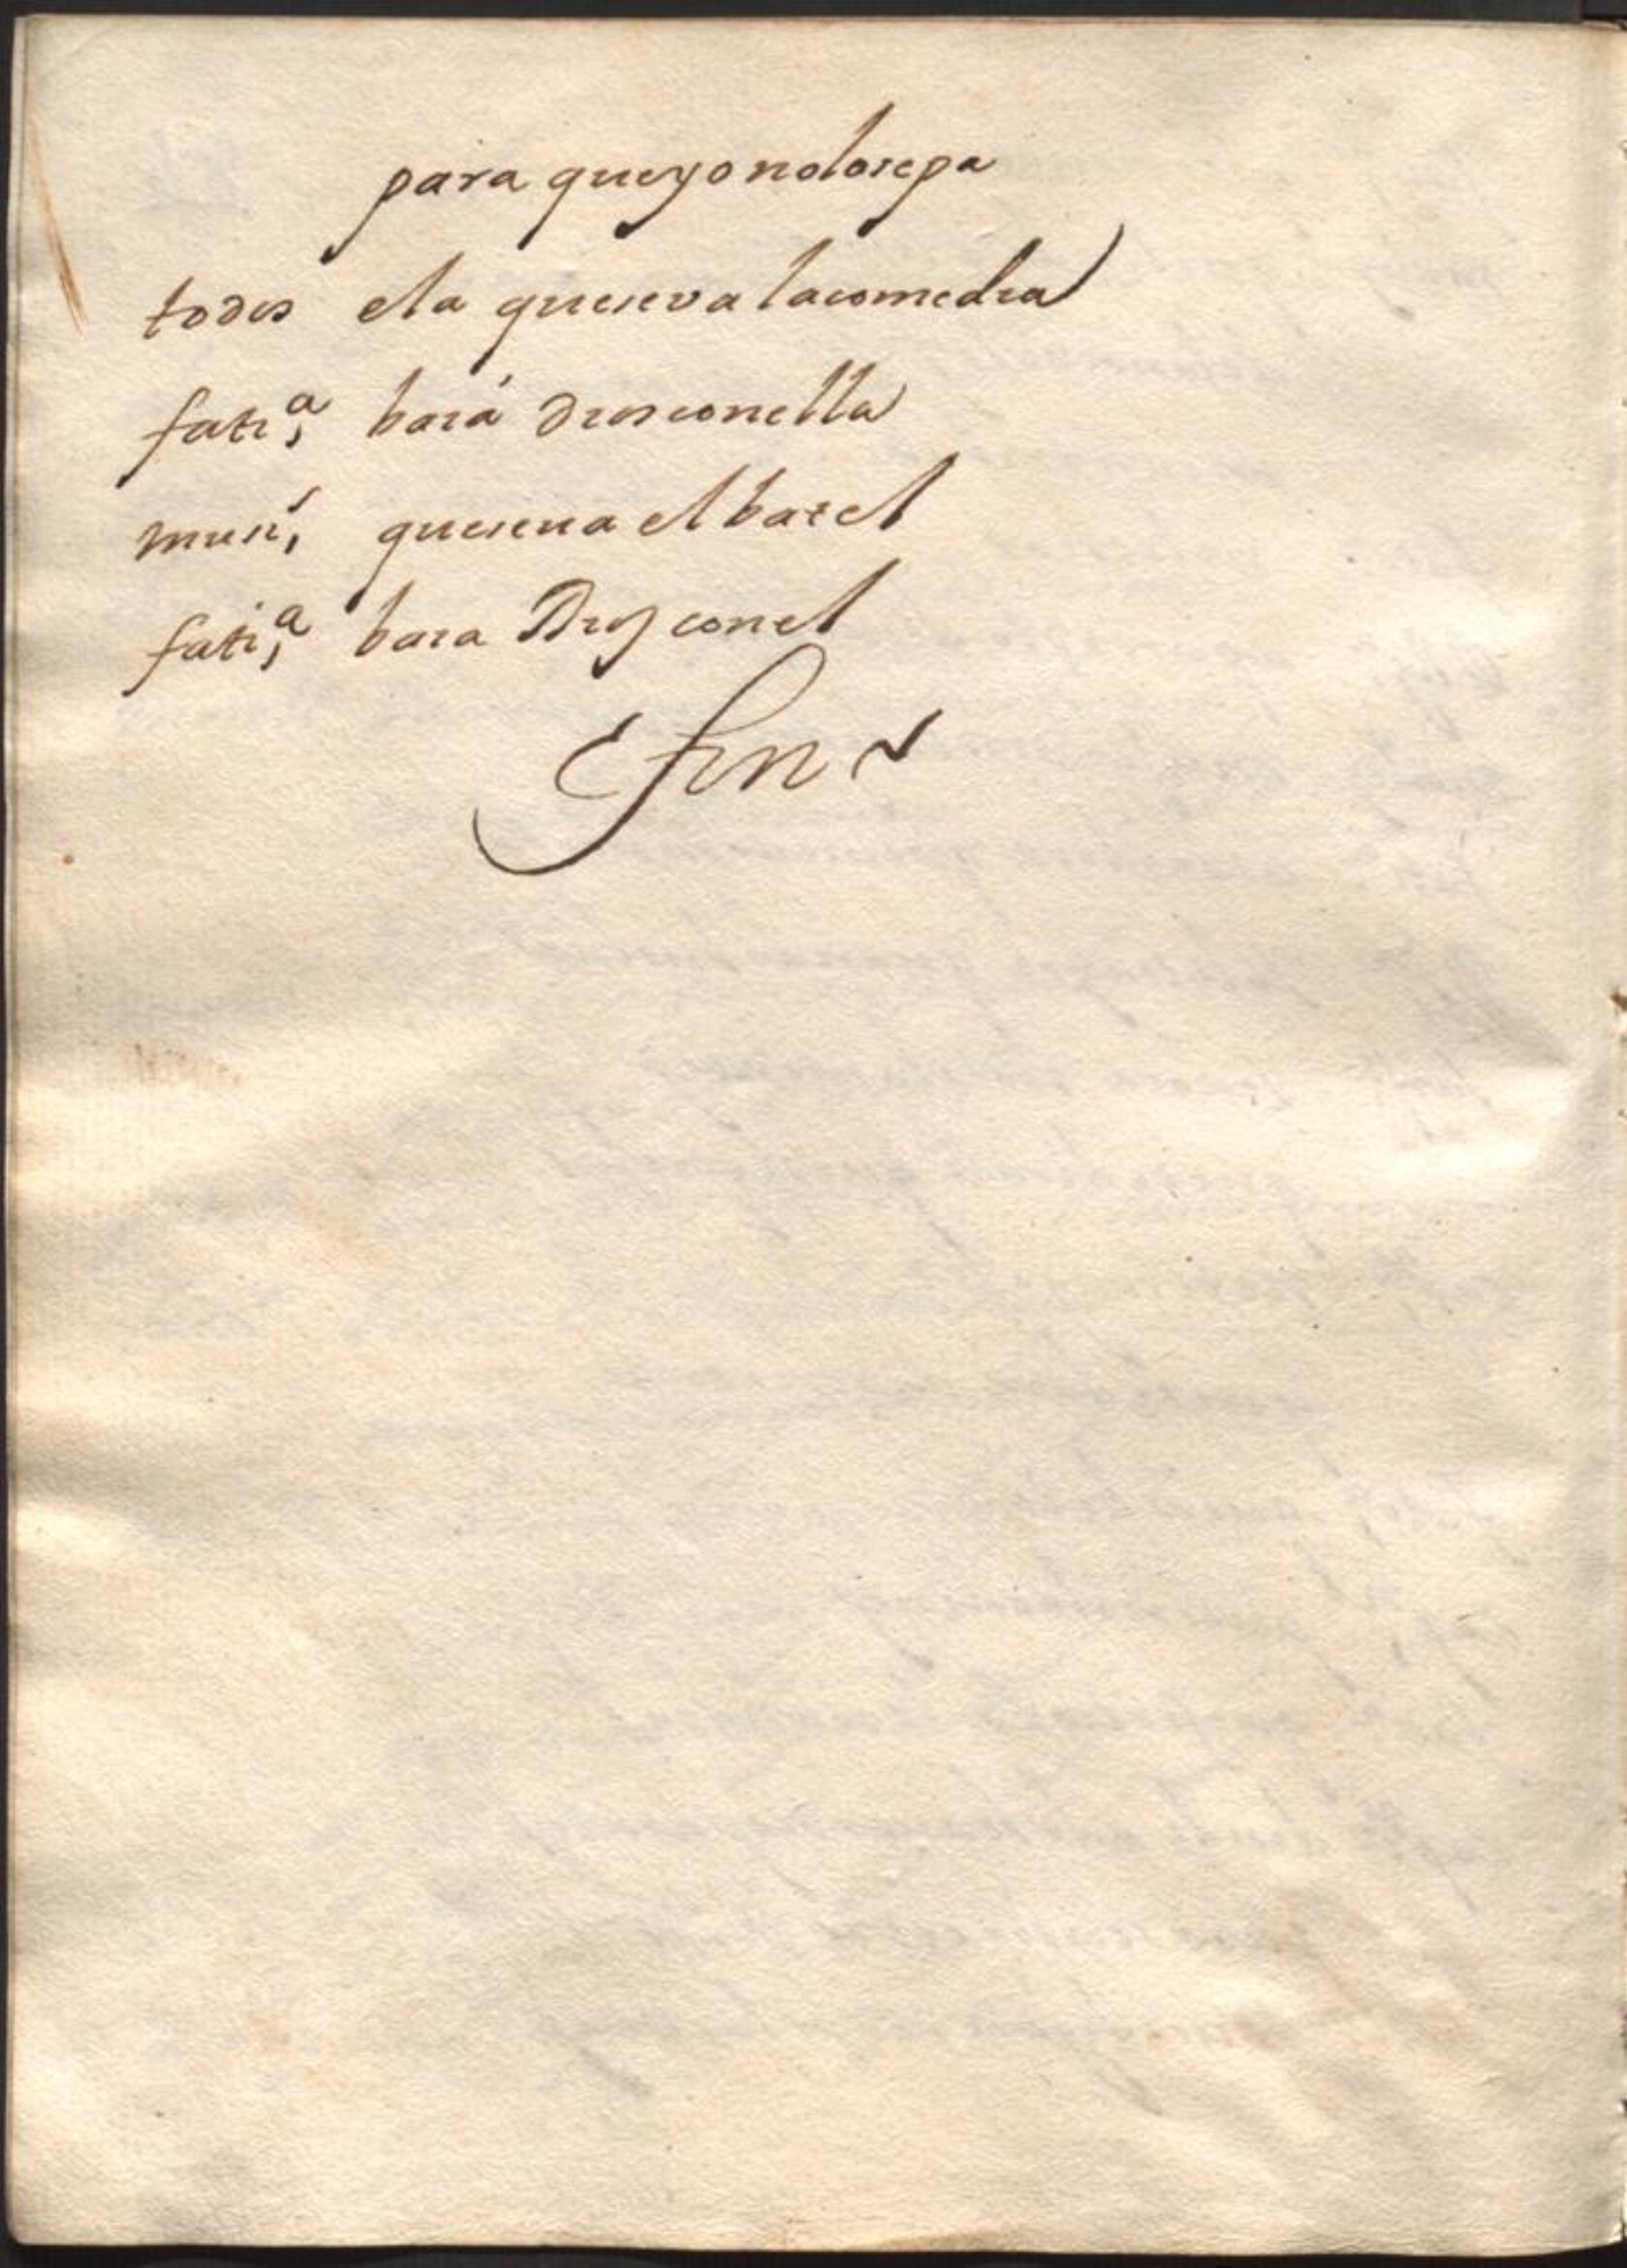 para que yo no lo sepa
todos ela que se va la comedia
fati.ª baia Dios con ella
musi, que se va el baxel
fati.ª baia Dios con el
fin